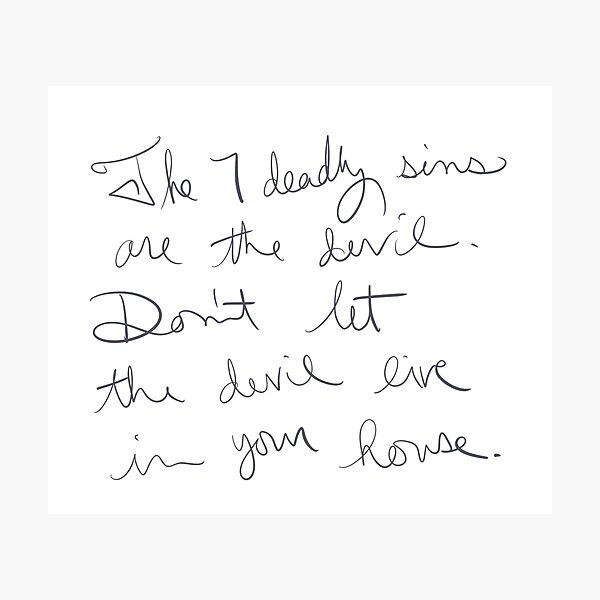 The 7 deadly sins
are the devil.
Don't let
the devil live
in your house.